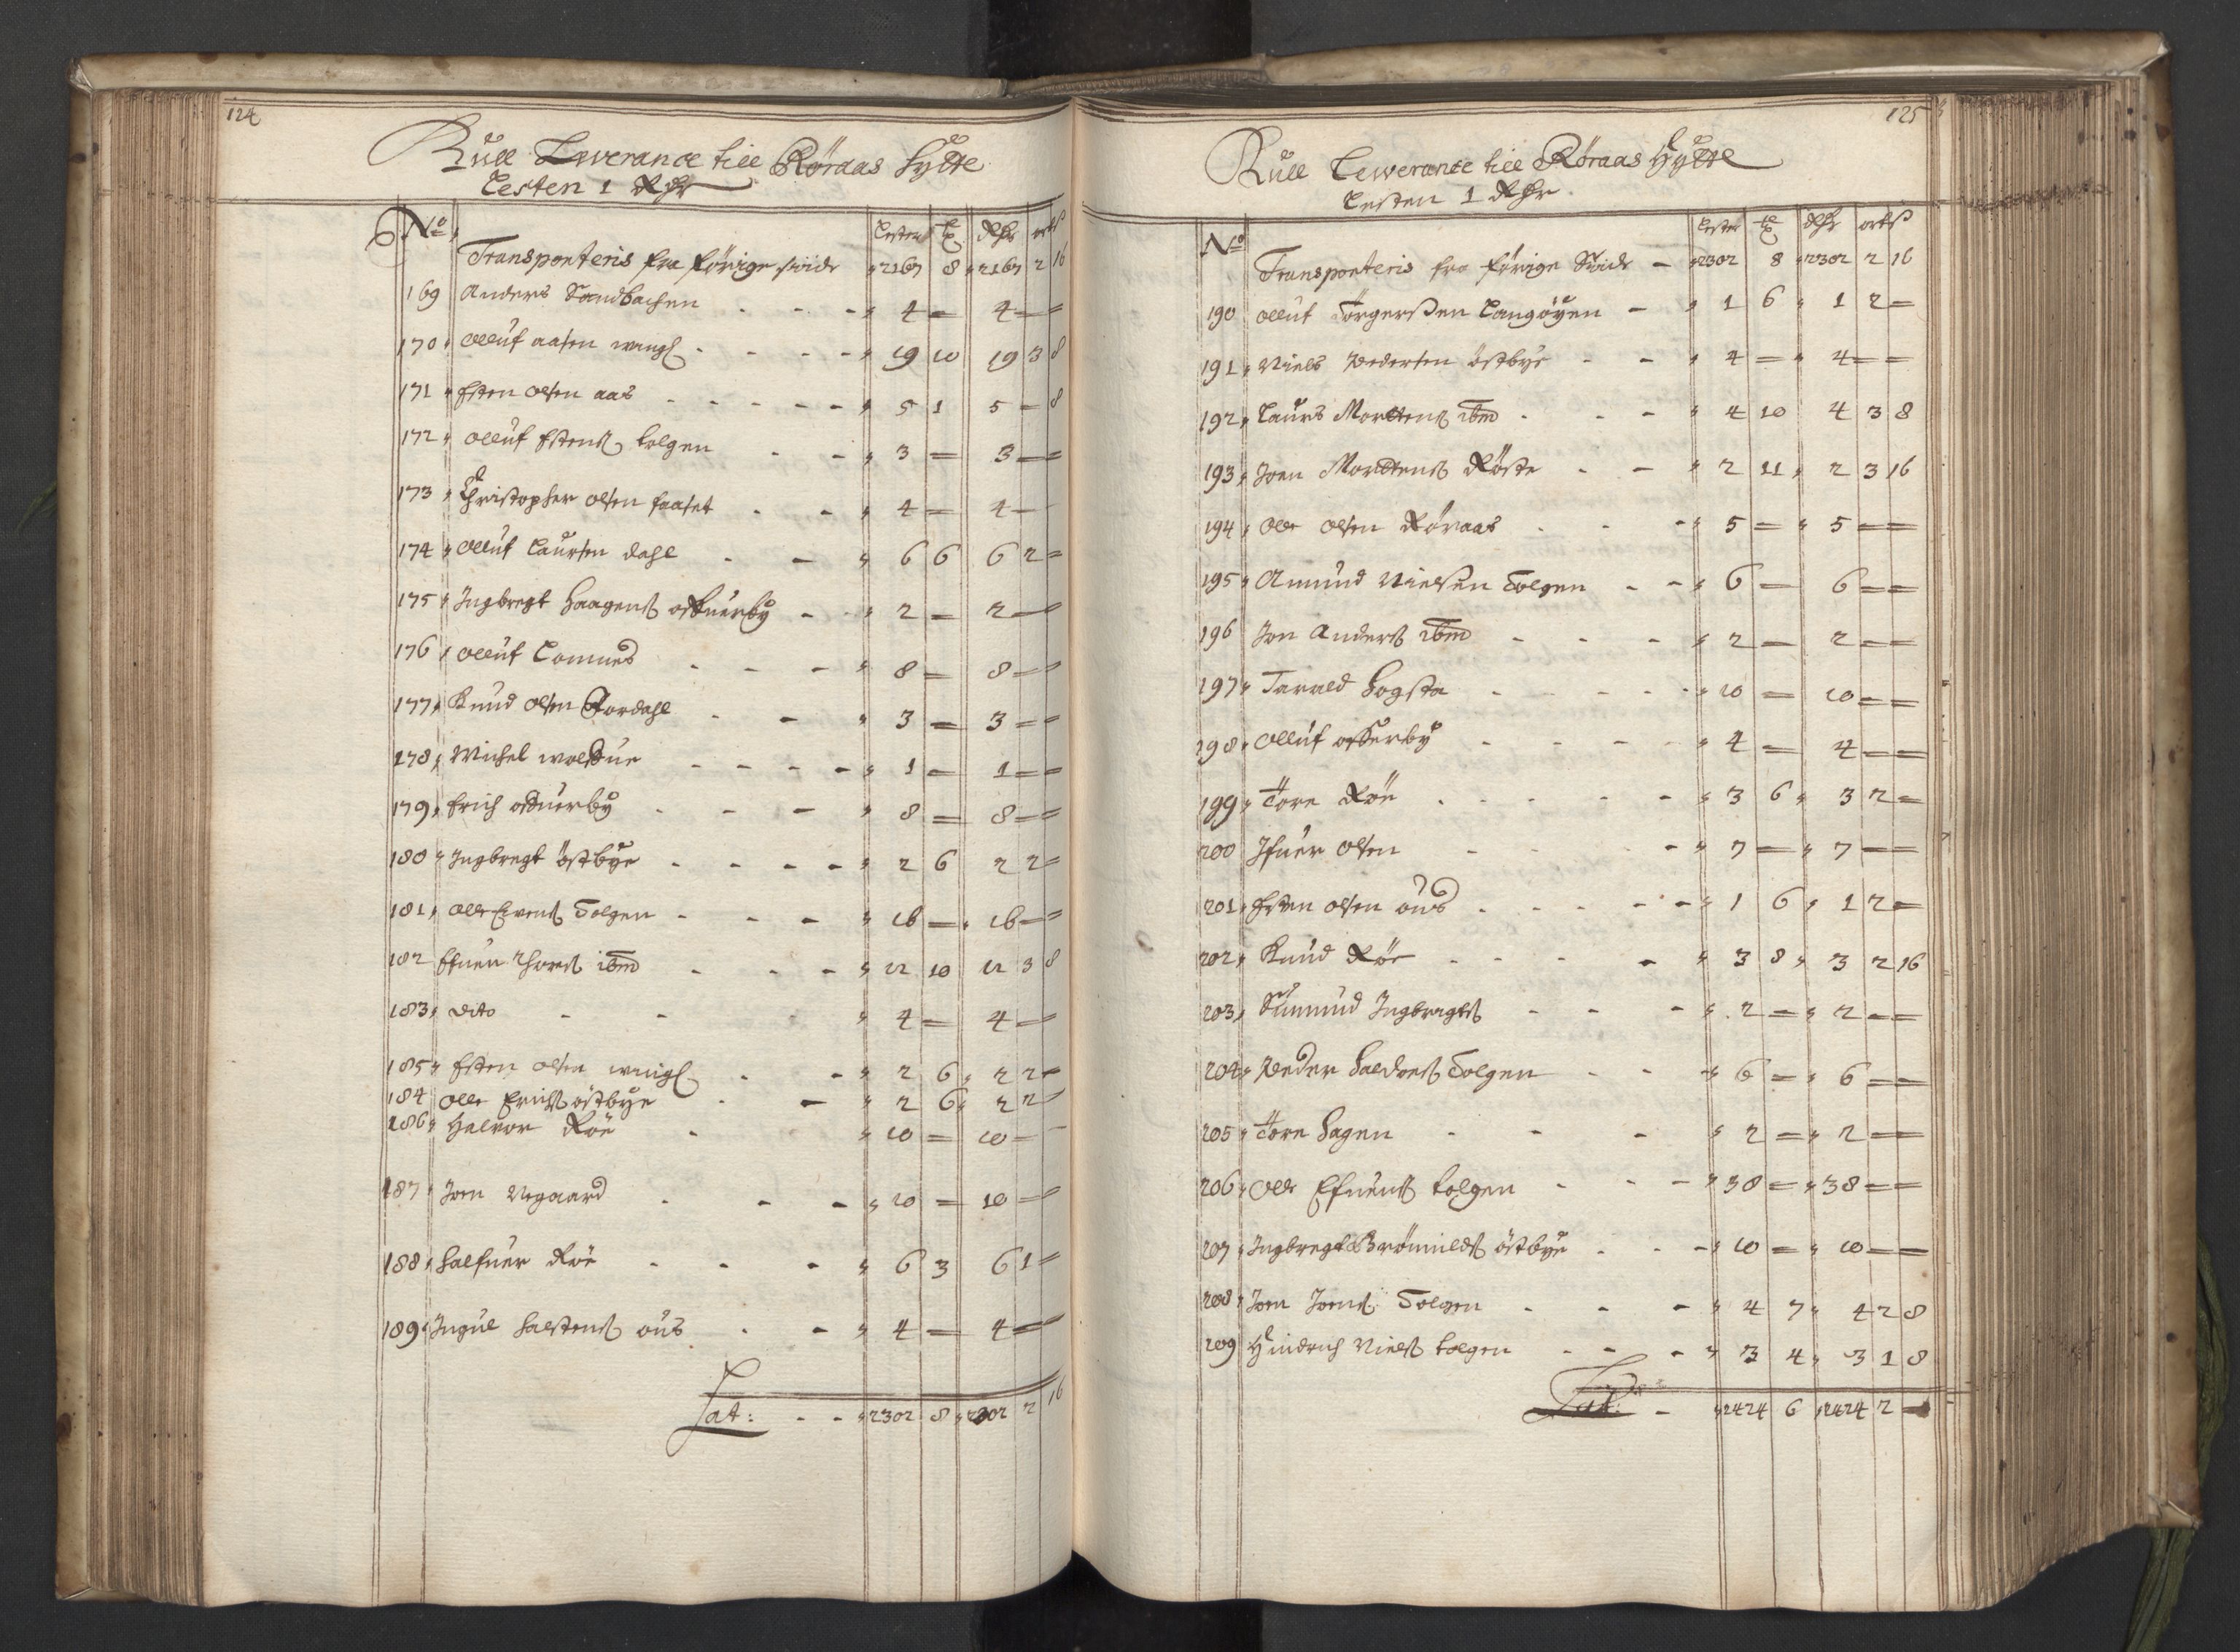 124
Kull Leverance till Röraas Hytte
Lesten 1 Rdr
No Lester Rdr ort ß
Transporteris fra förige siide 2167 8 2167 2 16
169 Anders Sandbachen - - - 4 = 4 = =
170 Olluf aasen - - - 19 10 19 3 8
171 Esten olsen aas - - - - - 5 1 5 = 8
172 olluf Estens tolgen - - 3 = 3 = =
173 Christopher olsen faaset - - 4 = 4 =
174 Olluf Laursen dahl - - 6 6 6 2 =
175 Ingbregt Haagens - - 2 = 2 =
176 olluf Lomnes - - - 8 = 8 = =
177 Knud olsen - - 3 = 3 = =
178 Michel - - - - 1 = 1 = =
179 Erich - - - 8 = 8 = =
180 Ingbregt östbye - - - - 2 6 2 2 =
181 Olle Evens Tolgen - - - 16 = 16 = =
182 Efuen Thores ibm - - - 12 10 12 3 8
183 dito - - 4 = 4 =
185 Esten olsen - - 2 6 2 2 =
184 Olle Erichs östbye - - 2 6 2 2
186 Halvor Röe - 10 = 10 =
187 Joen - - - 10 = 10 =
188 Halfuer Röe - - - 6 3 6 1 =
189 Ingul Halstens ous - - 4 = 4 =
Lat: - - 2302 8 2302 2 16
125
Kull Leverance till Röraas Hytte
Lesten 1 Rdr
No Lester Rdr ort ß
Transporteris fra förige Siide - 2302 8 2302 2 16
190 olluf Törgerssen Langöyen - 1 6 1 2 =
191 Niels Pedersen östbye - - 4 = 4 = =
192 Laurs Mortens ibm - - - 4 10 4 3 8
193 Joen Mortens Röste - - 2 11 2 3 16
194 Olle olsen Röraas - - - 5 = 5 = =
195 Amund Nielsen Tolgen - - 6 = 6 = =
196 Jon Anders ibm - - - 2 = 2 = =
197 Tarald Hogsta - - - - - 10 = 10 = =
198 Olluf - - - - 4 = 4 = =
199 Tore Röe - - - - - 3 6 3 2 =
200 Ifuer olsen - - - - 7 = 7 = =
201 Esten olsen ous - - - - - 1 6 1 2 =
202 Knud Röe - - - - 3 8 3 2 16
203 Ingbregts - - - 2 = 2 = =
204 Peder Haldoes Tolgen - - - 6 = 6 = =
205 Tore Hagen - - - 2 = 2 = =
206 Olle Efuens tolgen - - - 38 = 38 = =
207 Ingbregt Brömilds östbye - - - 10 = 10 = =
208 Joen Joens Tolgen - - - 4 7 4 2 8
209 Hindrich Niels tolgen - - - 3 4 3 1 8
Lat: - 2424 6 2424 2 =